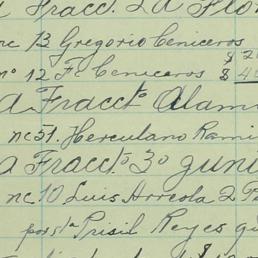 Fracc. La Flor
nc 13 Gregorio Ceniceros $ 2
nº 12 F. Ceniceros $ 4
a Fracctº Alami
nc 51. Herculano Rami
a Fracctº 30 Juni
nc. 10 Luis Arreola 2 P
por sta Prisil Reyes q